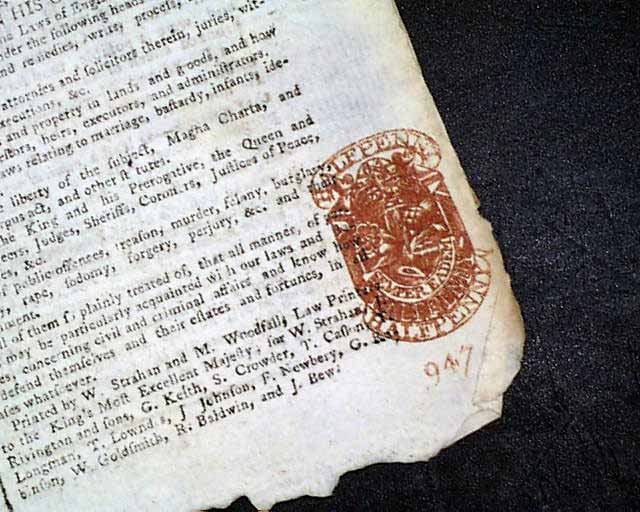 HIS
Laws of Eng
der the following heads
nd remedies, writs, process,
attornies and solicitors therein, juries, wit-
executions, &c.
and property in lands and goods, and how
estors, heirs, executors, and administrators.
aws relating to marriage, bastardy, infants, ide-
liberty of the subject, Magna Charta, and
rpus act, and other st tutes.
he King and his Prerogative, the Queen and
eers, Judges, Sheriffs, Coron.rs, Justices of Peace,
es, &c.
f public offences, treason, murder, felony, burglary,
, rape, sodomy, forgery, perjury, &c. and their
ll of them so plainly treated of, that all manner of
may be particularly acquainted wi h our laws and
es, concerning civil and criminal affairs and know how
defend themselves and their estates and fortunes, in all
ases whatsoever.
Printed by W. Strahan and M. Woodfall, Law Printers
to the King's Most Excellent Majesty, for W. Strahan, J.
Rivington and sons, G. Keith, S. Crowder, T. Caslon,
Longman, T. Lownd s, J Johnson, F. Newbery, G. R
binson, W. Goldsmith, R. Baldwin, and J. Bew.
HALFPENNY
ALTER EADEM
HALFPENNY
947